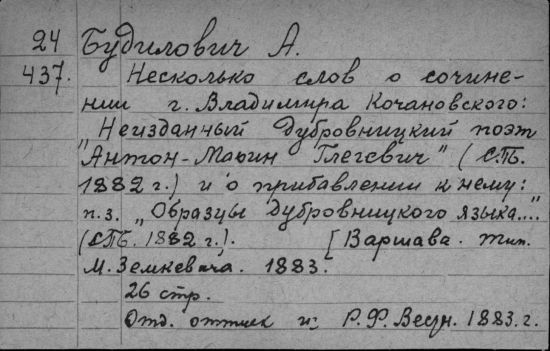 24 Будилович А.
437. Несколько слов о сочине-
нии г. Владимира Кочановского:
"Неизданный дубровницкий поэт
Антон-Марин Глегевич" (С.П.Б.
1882 г.) и о прибавлении к нему:
п. з. "Образцы дубровницкого языка..."
(С.П.Б. 1882 г.). [Варшава. Тип.
М. Земкевича. 1883.
26 стр.
Отд. оттиск из Р. Ф. Вестн. 1883. г.